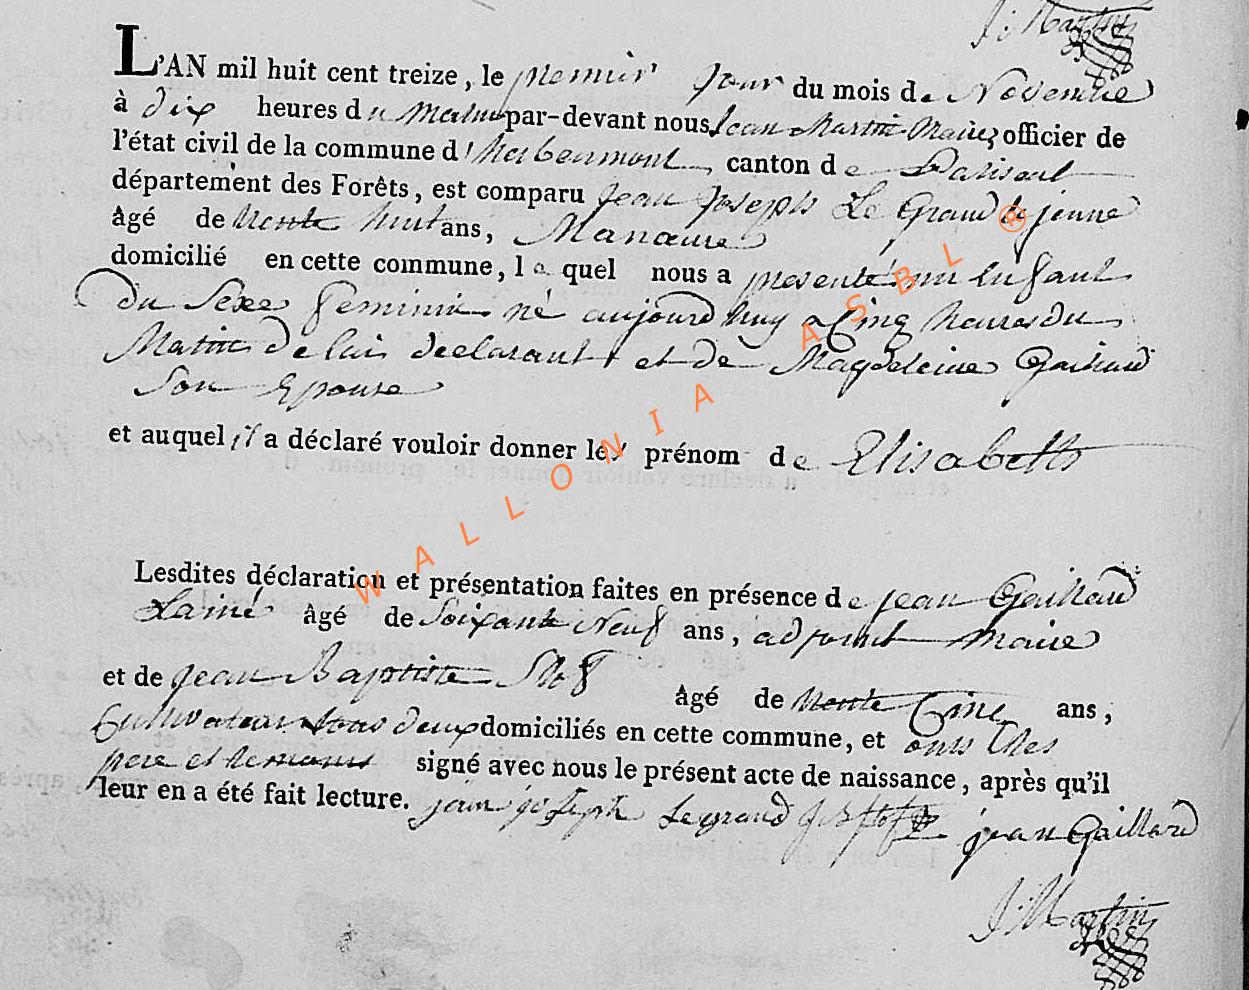 J: Martin
L'AN mil huit cent treize, le premier jour du mois de Novembre
à dix heures du Matin par-devant nous Jean Martin Maire, officier de
l'état civil de la commune d'Herbeumont, canton de Paliseul
département des Forêts, est comparu jean joseph Le Grand le jeune
âgé de trente huit ans, Manœuvre
domicilié en cette commune, le quel nous a presenté un Enfant
du Sexe feminin né aujourd'huy a Cinq heures du
Matin de lui declarant et de Magdeleine Gaillard
Son Epouse
et auquel il a déclaré vouloir donner les prénom de Elisabeth
Lesdites déclaration et présentation faites en présence de jean Gaillard
Lainé âgé de Soixante Neuf ans, adjoint maire
et de jean Baptiste âgé de trente Cinq ans,
Cultivateur tous deux domiciliés en cette commune, et ont les
pere et temoins signé avec nous le présent acte de naissance, après qu'il
leur en a été fait lecture. jean joseph Legrand jean Gaillard
J: Martin
WALLONIA ASBL ®